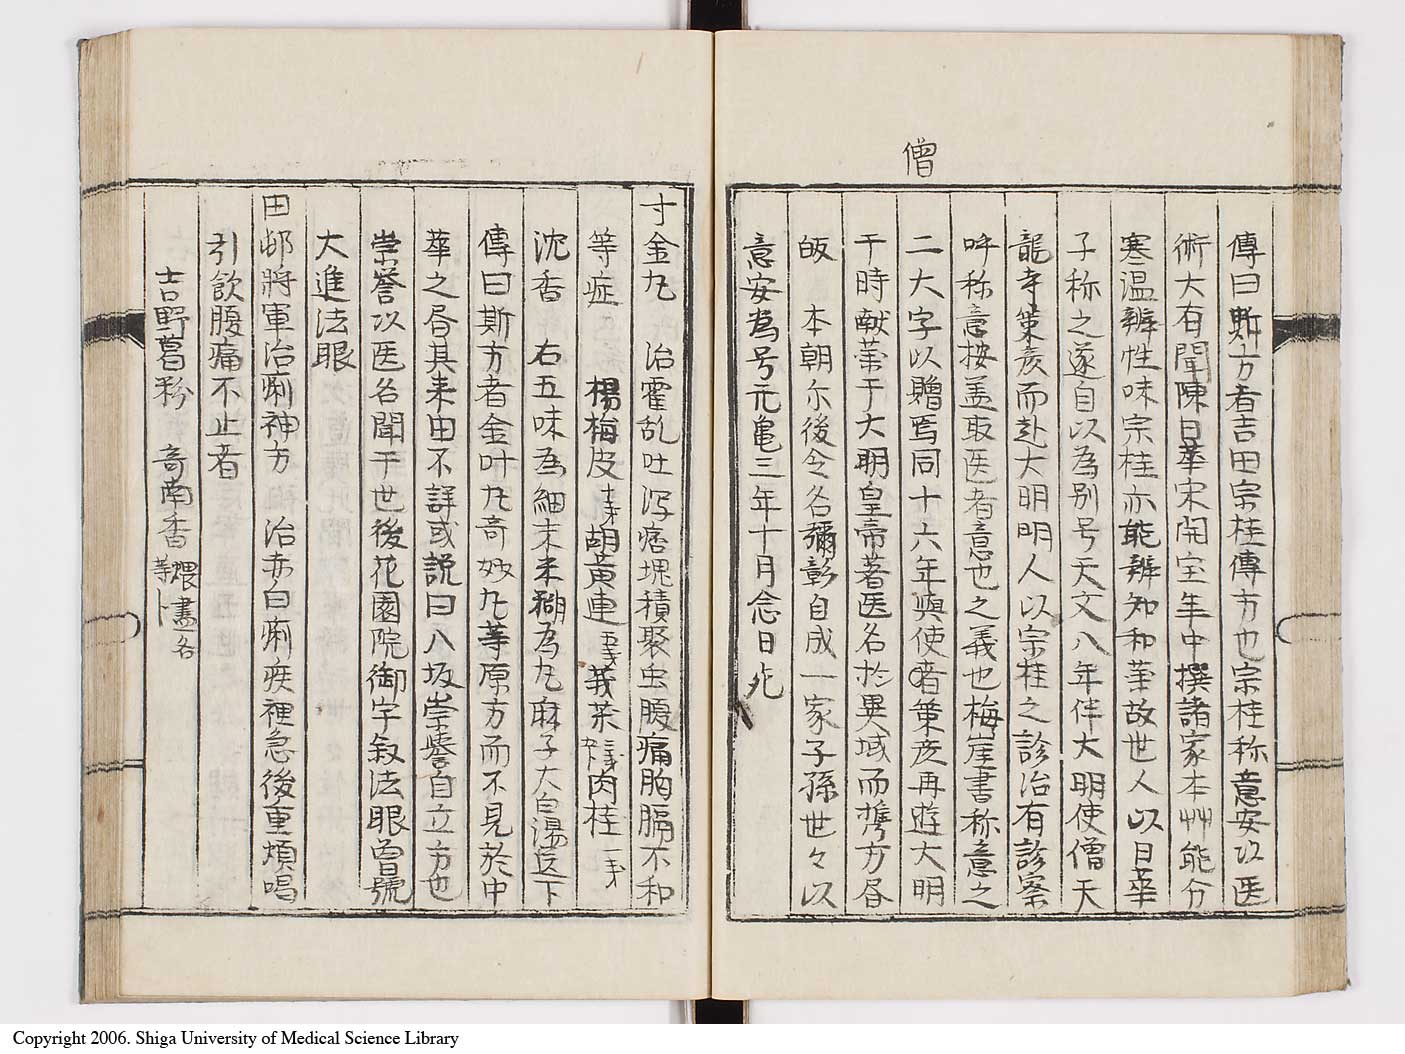 僧
傳曰斯方者吉田宗桂傳方也宗桂称意安以医
術大有聞陳日華宋開宝年中撰諸家本艸能分
寒温辨性味宗桂亦能辨知和薬故世人以日華
子称之遂自以為別号天文八年伴大明使僧天
龍寺策彦而赴大明明人以宗桂之診治有診案
呼称意按盖取医者意也之義也梅崖書称意之
二大字以贈焉同十六年與使者策彦再遊大明
于時献薬于大明皇帝著医名於異域而携方昏
皈 本朝尓後令名彌彰自成一家子孫世々以
意安為号元亀三年十月念日死
寸金丸 治霍乱吐泻痞塊積聚虫腹痛胸膈不和
等症 楊梅皮 胡黄連 莪茶 肉桂
沈香 右五味為細末米糊為丸麻子大白湯送下
傳曰斯方者金叶丸奇妙丸等原方而不見於中
華之昏其来由不詳或説曰八坂崇譽自立方也
崇誉以医名聞于世後花園院御宇叙法眼首號
大進法眼
田邨將軍治痢神方 治赤白痢疾裡急後重煩喝
引飲腹痛不止者
吉野葛粉 奇南香 煨 各等卜
Copyright 2006. Shiga University of Medical Science Library